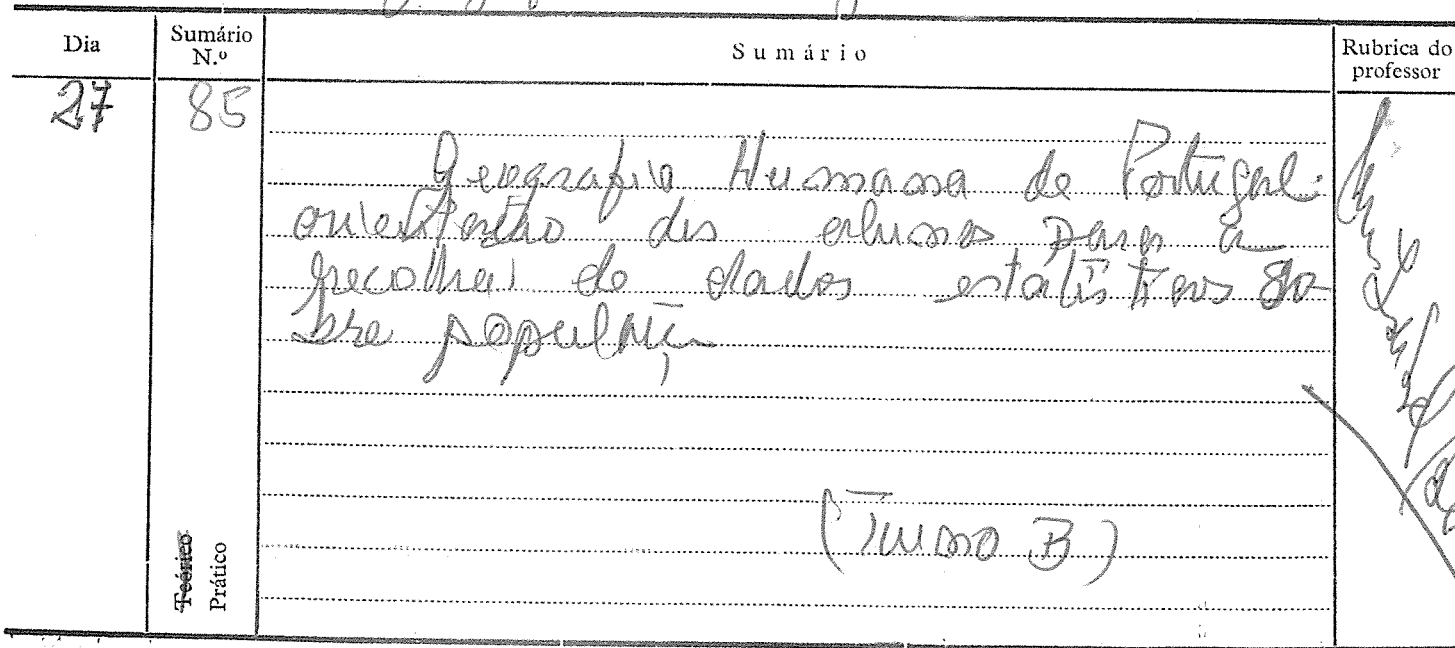 Dia Sumário N.º Sumário Rubrica do professor
27 85
Geografia Humana de Portugal:
orientação dos alunos para a
recolha de dados estatísticos so-
bre populaç
(Turno B)
Teórico
Prático